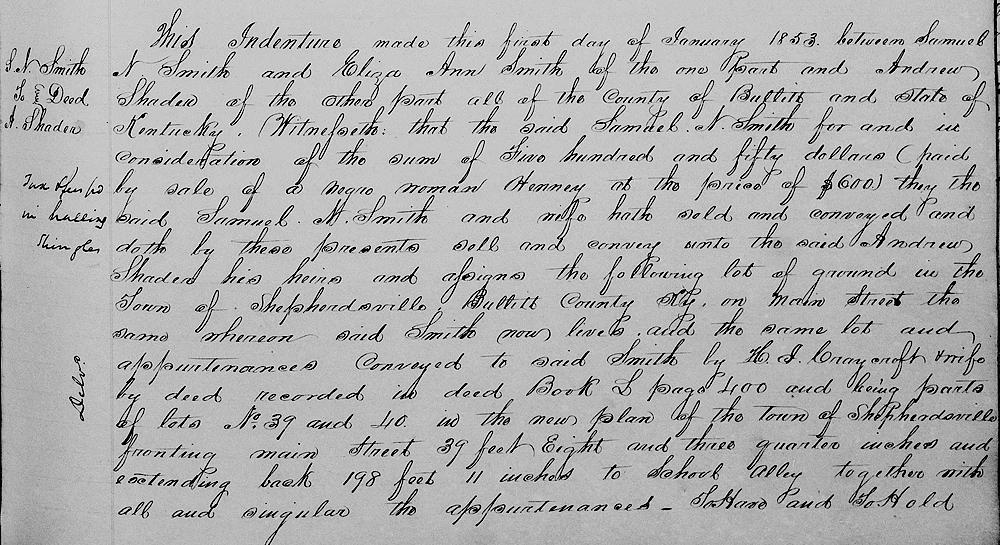 This Indenture made this first day of January 1853. between Samuel
S. N. Smith
N Smith and Eliza Ann Smith of the one part and Andrew
To Deed
Shader of the other part all of the County of Bullitt and state of
A. Shader
Kentucky. Witnesseth: that the said Samuel. N. Smith for and in
consideration of the sum of Five hundred and fifty dollars (paid
by sale of a negro woman Henney at the price of $600) they the
said Samuel. N. Smith and wife hath sold and conveyed and
in hauling
doth by these presents sell and convey unto the said Andrew
shingles
Shader his heirs and assigns the following lot of ground in the
Town of Shepherdsville Bullitt County Ky. on Main Street the
same whereon said Smith now lives. and the same lot and
appurtenances Conveyed to said Smith by H. I. Craycroft & wife
Delvd.
by deed recorded in deed Book L page 400 and being parts
of lots No. 39 and 40. in the new plan of the town of Shepherdsville
fronting main Street 39 feet Eight and three quarter inches and
extending back 198 feet 11 inches to School Alley together with
all and singular the appurtenances - To Have and To Hold